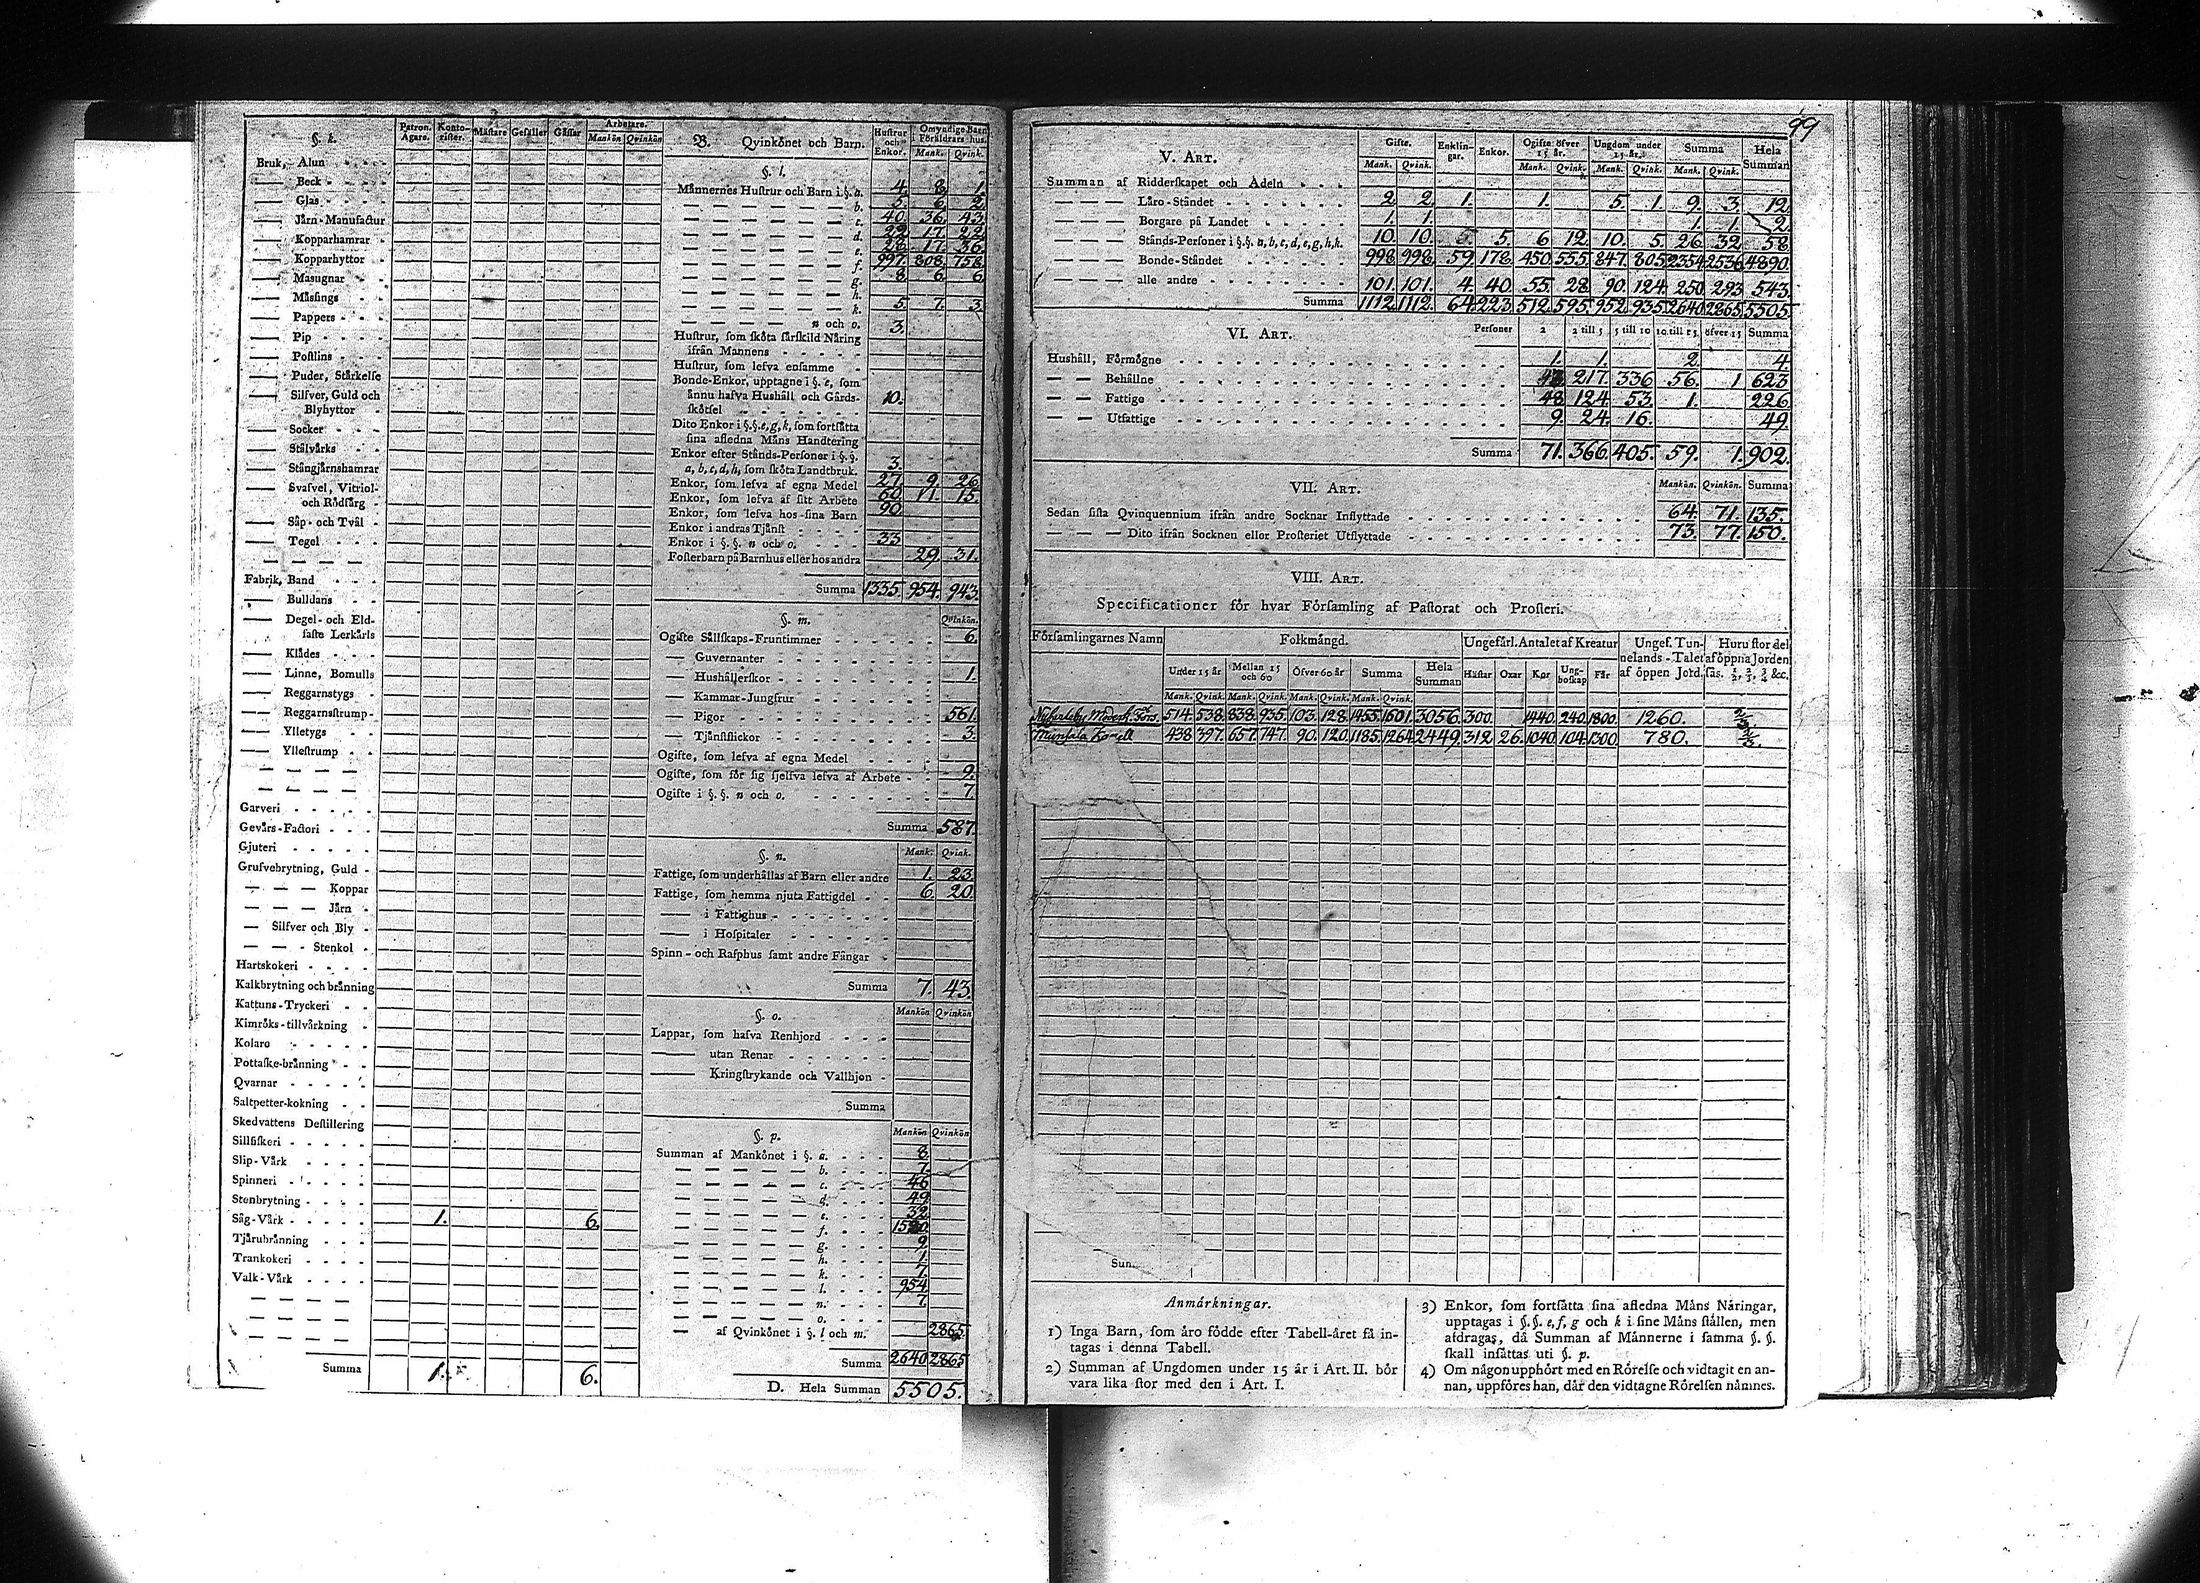 §. k.
Patron. Ägare. Konto-rister. Mästare Gesäller Gåssar Arbetare. Mankön Qvinkön
Bruk, Alun
— Beck
— Glas
— Järn-Manufactur
— Kopparhamrar
— Kopparhyttor
— Masugnar
— Mäsings
— Pappers
— Pip
— Postlins
— Puder, Stärkelse
— Silfver, Guld och
Blyhyttor
— Socker
— Stålvärks
— Stångjärnshamrar
— Svafvel, Vitriol-
och Rödfärg
— Såp- och Tvål
— Tegel
— — — —
Fabrik, Band
— Bulldans
— Degel- och Eld-
faste Lerkärls
— Klädes
— Linne, Bomulls
— Reggarnstygs
— Reggarnsstrump-
— Ylletygs
— Yllestrump
— — — —
— — — —
Garveri
Gevärs-Factori
Gjuteri
Grufvebrytning, Guld
— — — Koppar
— — — Järn
— Silfver och Bly
— — - Stenkol
Hartskokeri
Kalkbrytning och bränning
Kattuns-Tryckeri
Kimröks-tillvärkning
Kolare
Pottaske-bränning
Qvarnar
Saltpetter-kokning
Skedvattens Destillering
Sillfiskeri
Slip-Värk
Spinneri
Stenbrytning
Såg-Värk 1. 6.
Tjärubränning
Trankokeri
Valk-Värk
— — — —
— — — —
— — — —
Summa 1. 6.
B. Qvinkönet och Barn. Hustrur och Enkor. Omyndige Barn i Föräldrars hus. Mank. Qvink.
§. l.
Männernes Hustrur och Barn i §. a. 4. 8. 1.
— — — — — — b. 5. 6. 2.
— — — — — — c. 40. 36. 43.
— — — — — — d. 22. 17. 22.
— — — — — — e. 28. 17. 36.
— — — — — — f. 997. 808. 758.
— — — — — — g. 8. 6. 6.
— — — — — — h.
— — — — — — k. 5. 7. 3.
— — — — n och o. 3.
Hustrur, som sköta särskild Näring
ifrån Mannens
Hustrur, som lefva ensamme
Bonde-Enkor, upptagne i §. e, som
ännu hafva Hushåll och Gårds-
skötsel 10.
Dito Enkor i §.§. e, g, k, som fortsätta
sina afledna Mäns Handtering
Enkor efter Stånds-Personer i §.§.
a, b, c, d, h, som sköta Landtbruk. 3.
Enkor, som lefva af egna Medel 27. 9. 26.
Enkor, som lefva af sitt Arbete 60. 11. 15.
Enkor, som lefva hos sina Barn 90.
Enkor i andras Tjänst
Enkor i §. §. n och o. 33
Fosterbarn på Barnhus eller hos andra 29. 31.
Summa 1335. 954. 943.
§. m. Qvinkön.
Ogifte Sällskaps-Fruntimmer 6.
— Guvernanter
— Hushållerskor 1.
— Kammar-Jungfrur
— Pigor 561.
— Tjänstflickor 3.
Ogifte, som lefva af egna Medel
Ogifte, som för sig sjelfva lefva af Arbete 9.
Ogifte i §. §. n och o. 7.
Summa 587.
§. n. Mank. Qvink.
Fattige, som underhållas af Barn eller andre 1. 23.
Fattige, som hemma njuta Fattigdel 6. 20.
— i Fattighus
— i Hospitaler
Spinn- och Rasphus samt andre Fångar
Summa 7. 43.
§. o. Mankön Qvinkön
Lappar, som hafva Renhjord
— utan Renar
— Kringstrykande och Vallhjon
Summa
§. p. Mankön Qvinkön
Summan af Mankönet i §. a. 8.
— — — — — b. 7.
— — — — — c. 46
— — — — — d. 49.
— — — — — e. 32.
— — — — — f.
— — — — — g. 9.
— — — — — h. 1.
— — — — — k. 7.
— — — — — l. 954.
— — — — — n. 7.
— — — — — o.
— af Qvinkönet i §. l och m. 2865
Summa 2640 2865
D. Hela Summan 5505.
99
V. Art. Gifte. Mank. Qvink. Enklin-gar. Enkor. Ogifte öfver 15 år. Mank. Qvink. Ungdom under 15 år. Mank. Qvink. Summa Mank. Qvink. Hela Summan
Summan af Ridderskapet och Adeln
— — — Läro-Ståndet 2. 2. 1. 1. 5. 1. 9. 3. 12.
— — — Borgare på Landet 1. 1. 1. 1. 2.
— — — Stånds-Personer i §.§. a, b, c, d, e, g, h, k. 10. 10. 5. 6. 12. 10. 5. 26. 32. 58
— — — Bonde-Ståndet 998. 998. 59. 178. 450. 555. 847. 805. 2354. 2536. 4890.
— — — alle andre 101. 101. 4. 40. 55. 28. 90. 124. 250. 293. 543.
Summa 1112. 1112. 64. 223. 512. 595. 952. 935. 2640. 2865. 5505.
VI. Art. Personer 2 2 till 5 5 till 10 10 till 15 öfver 15 Summa
Hushåll, Förmögne 1. 1. 2. 4.
— — Behållne 217. 336 56. 1 623
— — Fattige 48. 124. 53. 1. 226
— — Utfattige 9. 24. 16. 49.
Summa 71. 366. 405. 59. 1. 902.
VII. Art. Mankön. Qvinkön. Summa
Sedan sista Qvinquennium ifrån andre Socknar Inflyttade 64. 71. 135.
— — — Dito ifrån Socknen eller Prosteriet Utflyttade 73. 77. 150.
VIII. Art.
Specificationer för hvar Församling af Pastorat och Prosteri.
Församlingarnes Namn Folkmängd. Ungefärl. Antalet af Kreatur Ungef. Tun-nelands-Talet af öppen Jord. Huru stor del af öppna Jorden sås. 1/2, 1/3, 3/4 &c.
Under 15 år Mellan 15 och 60 Öfver 60 år Summa Hela Summan Hästar Oxar Kor Ung-boskap Får
Mank. Qvink. Mank. Qvink. Mank. Qvink. Mank. Qvink.
Nykarleby Moderk. Förs. 514. 538. 838. 935. 103. 128. 1455. 1601. 3056. 300. 1440. 240. 1800. 1260. 2/3
Munsala Kapell 438. 397. 657. 747. 90. 120. 1185. 1264. 2449. 312. 26. 1040. 104. 1300. 780. 2/3.
Anmärkningar.
1) Inga Barn, som äro födde efter Tabell-året få in-
tagas i denna Tabell.
2) Summan af Ungdomen under 15 år i Art. II. bör
vara lika stor med den i Art. I.
3) Enkor, som fortsätta sina afledna Mäns Näringar,
upptagas i §.§. e, f, g och k i sine Mäns ställen, men
afdragas, då Summan af Männerne i samma §. §.
skall insättas uti §. p.
4) Om någon upphört med en Rörelse och vidtagit en an-
nan, uppföres han, där den vidtagne Rörelsen nämnes.